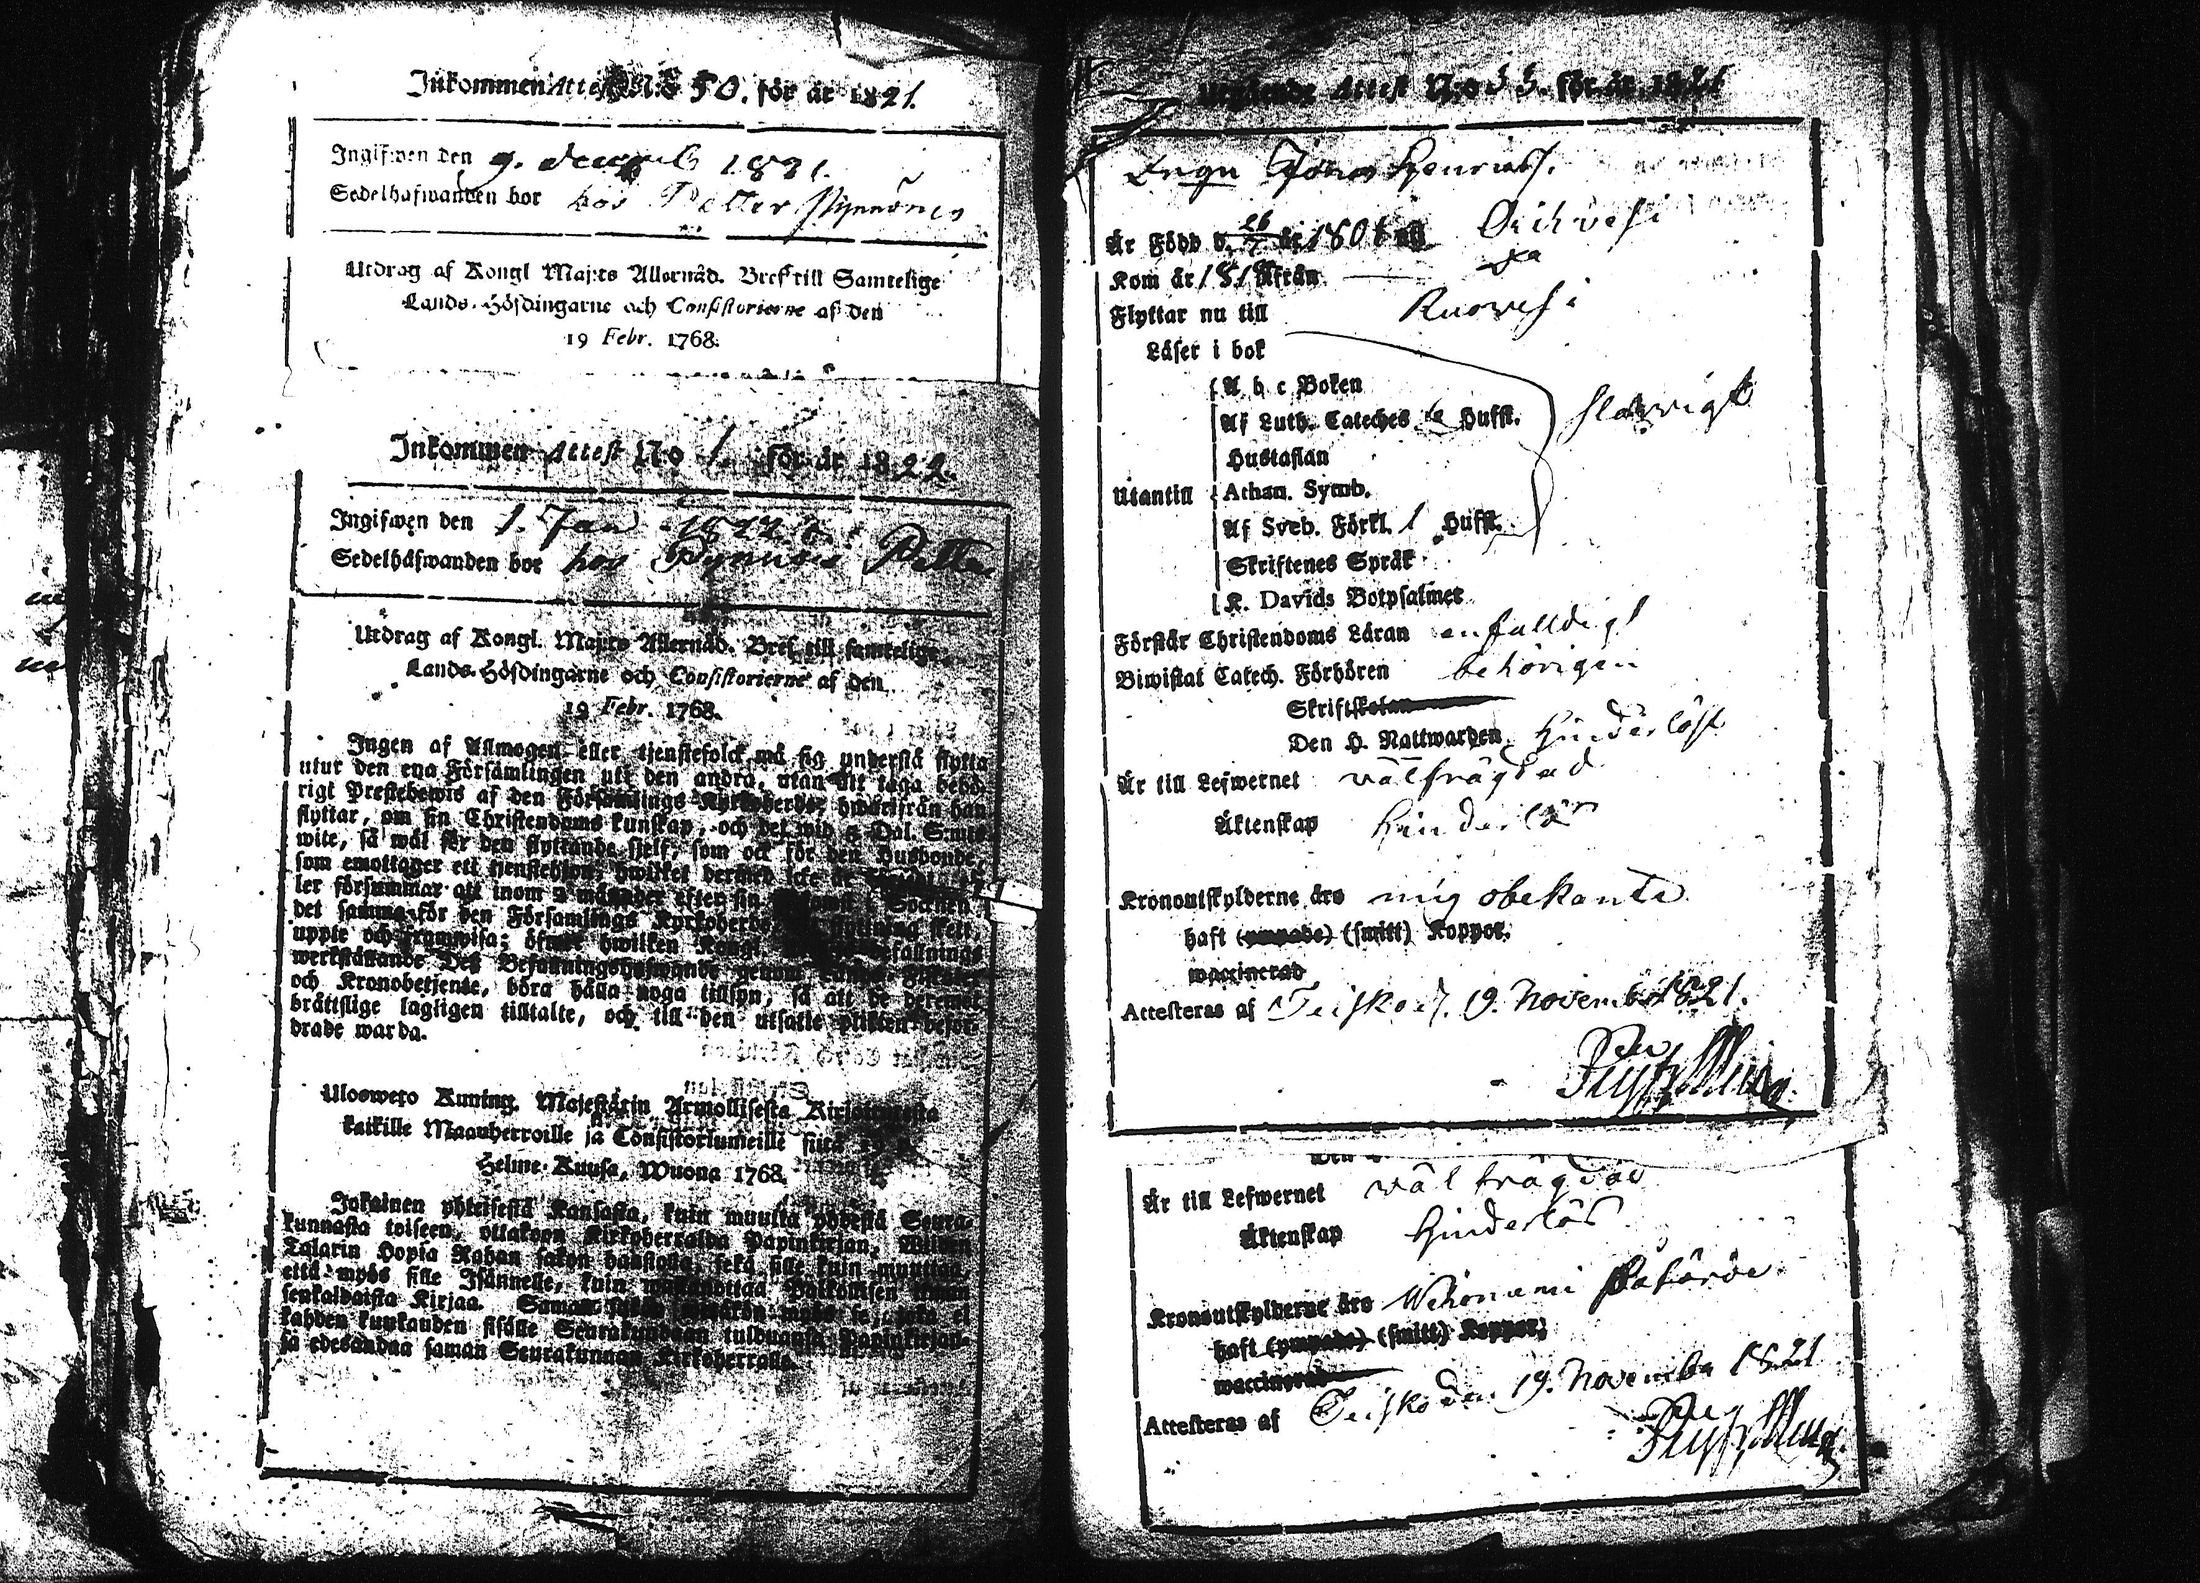 Inkommen Attest N:o 50. för år 1821.
Ingifwen den 9. decemb 1821.
Sedelhafwanden bor hos Petter Pynnönen
Utdrag af Kongl Maj:ts Allernåd. Bref till Samtelige
Lands-Höfdingarne och Consistorierne af den
19 Febr. 1768.
Inkommen Attest N:o 1. för år 1822.
Ingifwen den 1. Jan 1822
Sedelhafwanden bor hos Petter
Utdrag af Kongl. Maj:ts Allernåd. Bref till samtelige
Lands-Höfdingarne och Consistorierne af den
19 Febr. 1768.
Ingen af Allmogen eller tjenstefolck må sig understå flytta
utur den ena Församlingen uti den andra, utan att taga behö-
rigt Prestebewis af den Församlings Kyrkoherde, hwarifrån han
flyttar, om sin Christendoms kunskap, och det wid 5 Dal. S:mts
wite, så wäl för den flyttande sjelf, som ock för den Husbonde,
som emottager ett tjenstehjon, hwilket dermed icke är
ler försummar att inom 2 månader efter sin i Socknen
det samma för den Församlings Kyrkoherde, flyttning skett,
uppte och framwisa; öfwer hwilken Kongl befallnings
werkställande Des Befallningshafwande genom
och Kronobetjente, böra hålla noga tillsyn, så att de deremot
bråttslige lagligen tilltalte, och till den utsatte plikten befor-
drade warda.
Uloswero Kuning. Majestätin Armollisesta Kirjoituxesta
kaikille Maanherroille ja Consistoriumeille siitä 19
Helme-Kuusa, Wuona 1768.
Jokainen yhteisestä Kansasta, kuin muutta yhdestä Seura-
kunnasta toiseen, ottakoon Kirkoherralda Papinkirjan,
Talarin Hopia Rahan sakon haastolla, sekä sille kuin muuttaa,
että myös sille Isännelle, kuin
senkaldaista Kirjaa. Saman se, joka ei
kahden kuukauden sisälle Seurakundaan tulduansa Papinkirjan-
sa edesandaa saman Seurakunnan Kirkoherralle.
Utgående Attest N:o 55. för år 1821
Jonas Henricss.
Är Född d. 26/7 år 1806 uti Orihvesi
Kom år 1818 ifrån
Flyttar nu till Ruovesi
Läser i bok
A b c Boken
Af Luth. Cateches Hufst.
Hustaflan
Utantill Athan. Symb.
Af Sveb. Förkl. 1 Hufst.
Skriftenes Språk
K. Davids Botpsalmer
Förstår Christendoms Läran enfalldigt
Biwistat Catech. Förhören behörigen
Skriftskolan
Den H. Nattwarden Hinderlöst
Är till Lefwernet välfrägdad
Äktenskap Hinderlös
Kronoutskylderne äro mig obekante
haft (ympade) (smitt) Koppor.
waccinerad
Attesteras af Teisko d. 19. November 1821.
Är till Lefwernet välfrägdad
Äktenskap Hinderlös
Kronoutskylderne äro
haft (ympade) (smitt) Koppor;
waccinerad
Attesteras af Teisko den 19. November 1821